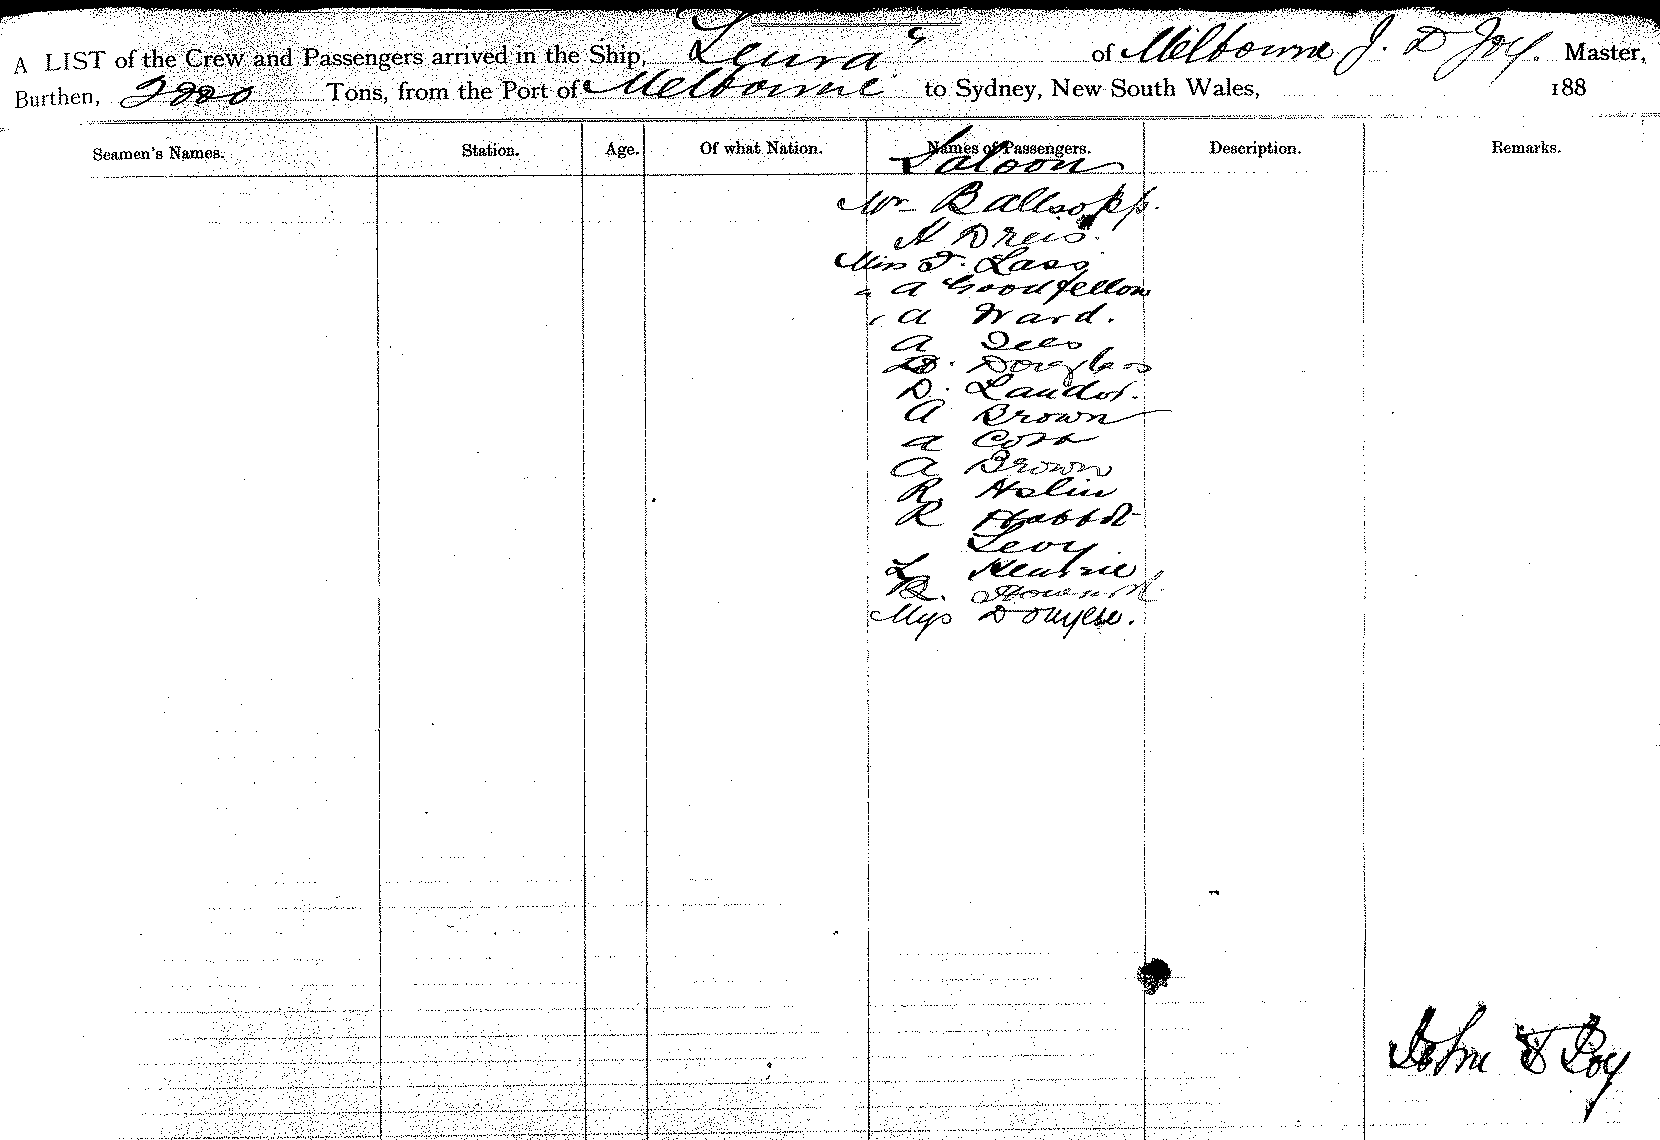 A LIST of the Crew and Passengers arrived in the Ship, "Leura" of Melbourne J. D Joy. Master,
Burthen, 2000 Tons, from the Port of Melbourne to Sydney, New South Wales, 188
Seamen's Names. Station. Age. Of what Nation. Names of Passengers. Description. Remarks.
Saloon
Mr B Allsopp.
H Dreis.
Miss F. Lass
" A Goodfellow
" A Ward.
A
D. Douglas
D. Landor.
A Brown
A
A Brown
R. Aslin
R
Levy
L
R.
John D Joy